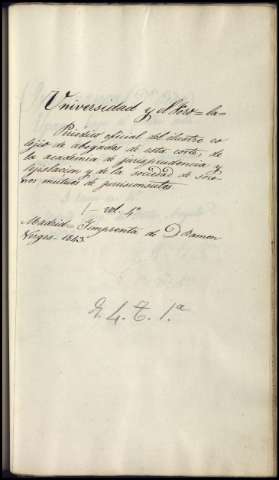 Universidad y el Foro=la=
Periódico oficial del ilustre co
legio de abogados de esta corte, de
la academia de jurisprudencia y
legislacion y de la sociedad de soco
rros mutuos de jurisconsultos
1 vol. 4º
Madrid= Imprenta de D. Ramon
Verges= 1843
E. 4. T. 1.ª